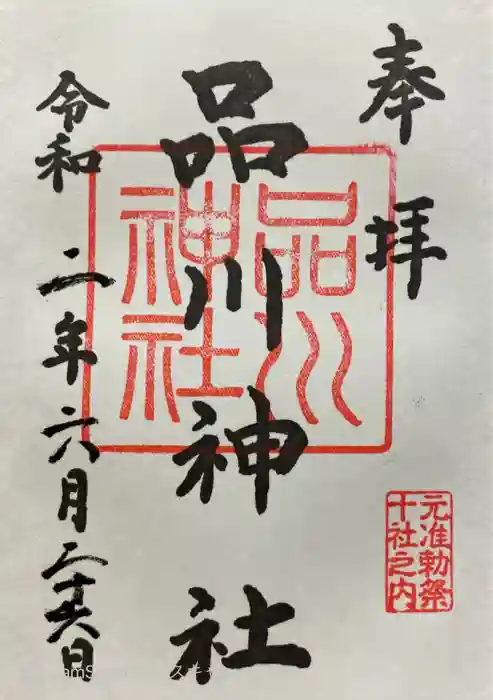 奉拝
品川神社
品川
神社
令和二年六月二十六日
元准勅祭
十社之内